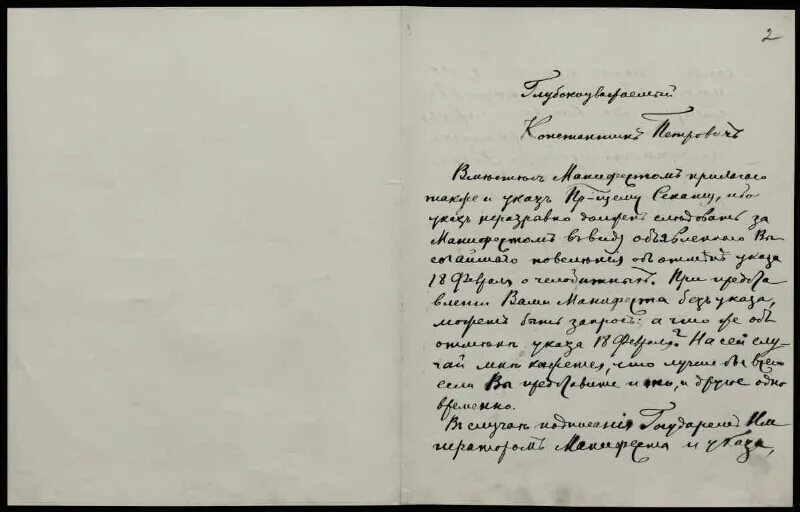 2
Глубокоуважаемый
Константинъ Петровичъ
Вмѣстѣ съ Манифестомъ прилагаю
также и указъ Пр-щему Сенату, ибо
указъ неразрывно долженъ слѣдовать за
Манифестомъ въ виду объявленнаго Вы
сочайшаго повелѣнія объ отмѣнѣ указа
18 Февраля о челобитныхъ. При предста
вленіи Вами Манифеста безъ указа,
можетъ быть запросъ: а что же объ
отмѣнѣ указа 18 Февраля? На сей слу
чай мнѣ кажется, что лучше бы всего
если Вы представите и то, и другое одно
временно.
Въ случаѣ подписанія Государемъ Им
ператоромъ Манифеста и указа,